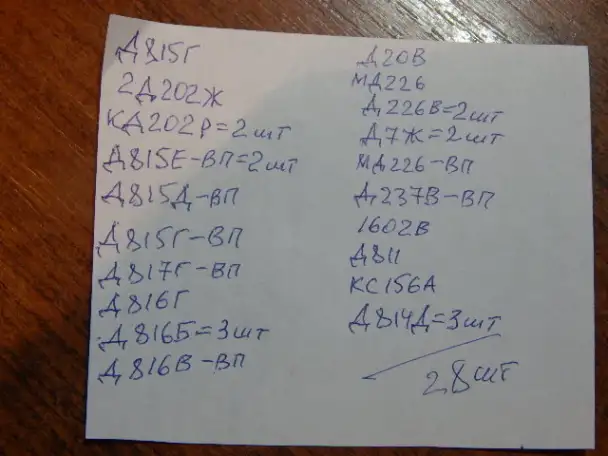 Д815Г
2Д202Ж
КД202Р=2шт
Д815Е-ВП=2шт
Д815Д-ВП
Д815Г-ВП
Д817Г-ВП
Д816Г
Д816Б=3шт
Д816В-ВП
Д20В
МД226
Д226В=2шт
Д7Ж=2шт
МД226-ВП
Д237В-ВП
1602В
Д811
КС156А
Д814Д=3шт
28шт